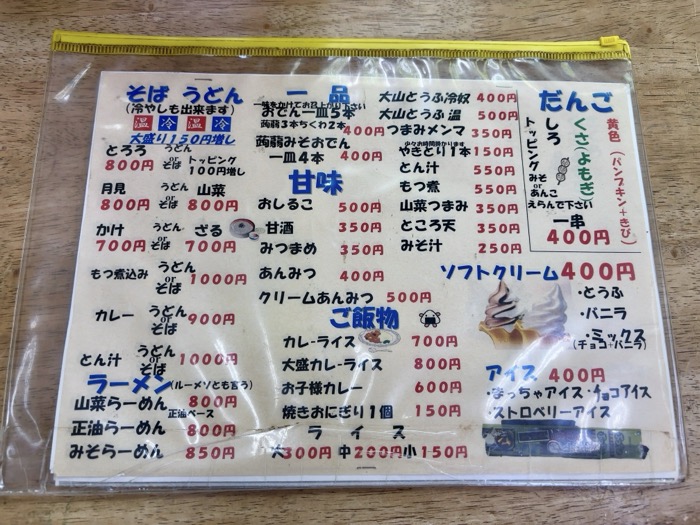 そば うどん
(冷やしも出来ます)
温 冷 温 冷
大盛り150円増し
とろろ うどん or そば トッピング
800円 100円増し
月見 うどん or そば 山菜
800円 800円
かけ うどん or そば ざる
700円 700円
もつ煮込み うどん or そば 1000円
カレー うどん or そば 900円
とん汁 うどん or そば 1000円
ラーメン(ルーメソとも言う)
山菜らーめん 800円
正油ベース
正油らーめん 800円
みそらーめん 850円
一品
おでん一皿5本
蒟蒻3本ちくわ2本 400円
蒟蒻みそおでん
一皿4本 400円
甘味
おしるこ 500円
甘酒 350円
みつまめ 350円
あんみつ 400円
クリームあんみつ 500円
ご飯物
カレ-ライス 700円
大盛カレ-ライス 800円
お子様カレー 600円
焼きおにぎり1個 150円
ライス
大300円 中200円小150円
大山とうふ冷奴 400円
大山とうふ 温 500円
つまみメンマ 350円
やきとり1本 150円
とん汁 550円
もつ煮 550円
山菜つまみ 350円
ところ天 350円
みそ汁 250円
だんご
黄色(パンプキン+きび)
くさ(よもぎ)
しろ
トッピング
みそ
or
あんこ
えらんで下さい
一串
400円
ソフトクリーム400円
・とうふ
・バニラ
・ミックス
(チョコ+バニラ)
アイス 400円
・まっちゃアイス・チョコアイス
・ストロベリーアイス